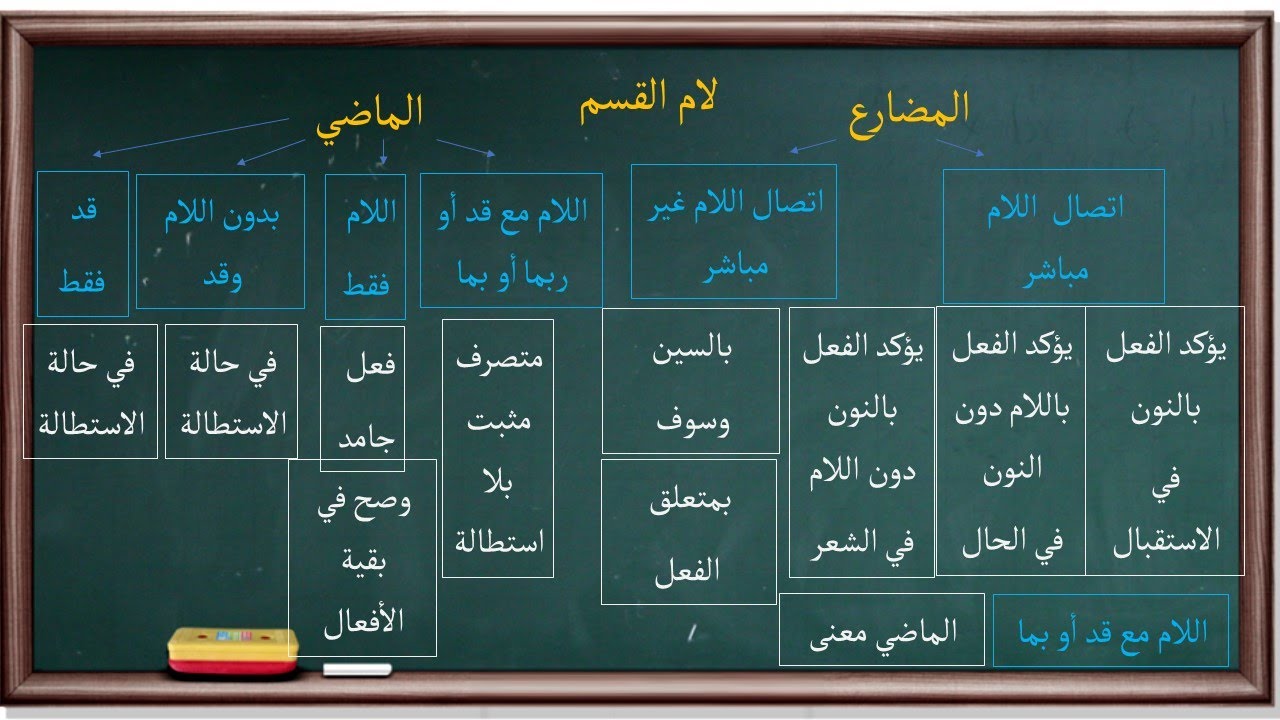 لام القسم
المضارع
اتصال اللام
مباشر
يؤكد الفعل
بالنون
في
الاستقبال
يؤكد الفعل
باللام دون
النون
في الحال
يؤكد الفعل
بالنون
دون اللام
في الشعر
اتصال اللام غير
مباشر
بالسين
وسوف
بمتعلق
الفعل
اللام مع قد أو بما
الماضي معنى
الماضي
اللام مع قد أو
ربما أو بما
متصرف
مثبت
بلا
استطالة
اللام
فقط
فعل
جامد
وصح في
بقية
الأفعال
بدون اللام
وقد
في حالة
الاستطالة
قد
فقط
في حالة
الاستطالة